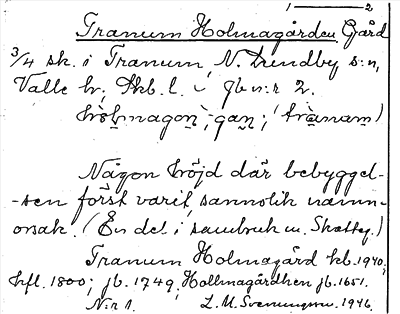 1 — 2
Tranum Holmagården Gård
3/4 sk. i Tranum, N. Trundby s:n,
Valle hr, Skb. l. jb n:r 2.
Någon höjd där bebyggel-
-sen först varit, sannolik namn-
orsak. (En del i sambruk m. Skatteg.)
Tranum Holmagård kb. 1940;
hfl. 1800; jb. 1749; Hollmagårdhen jb. 1651.
N:r 1. L. M. Svenungsson. 1946.